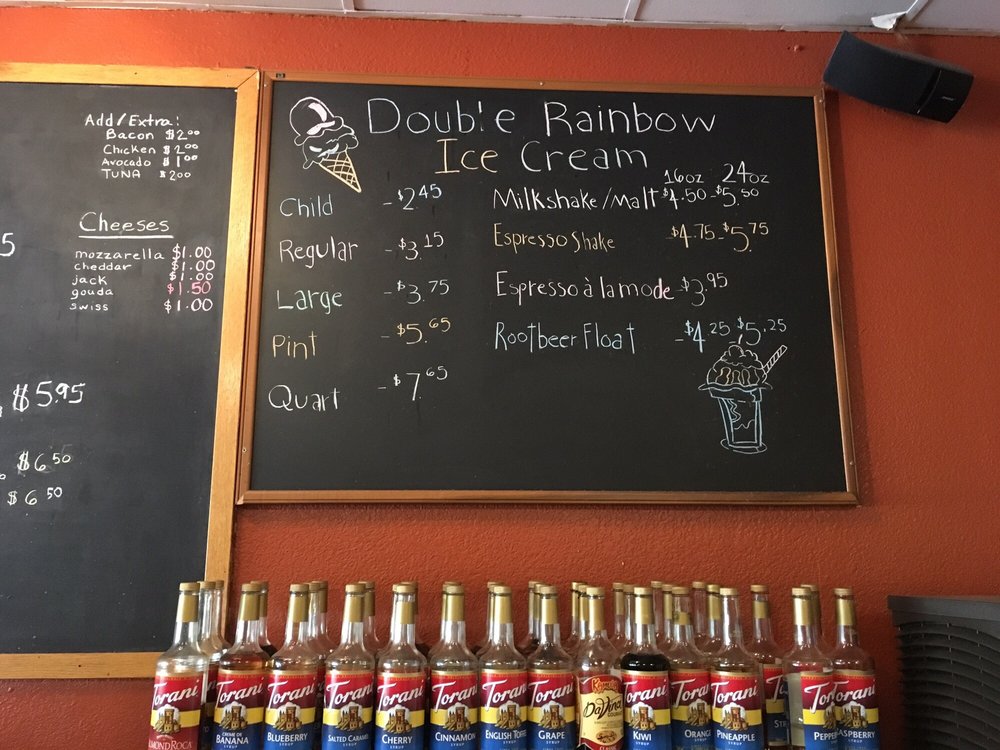 Add/Extra:
Bacon $2.00
Chicken $2.00
Avocado $1.00
TUNA $2.00
Cheeses
mozzarella $1.00
cheddar $1.00
jack $1.00
gouda $1.50
swiss $1.00
5
$5.95
$6.50
$6.50
Double Rainbow
Ice Cream
Child - $2.45
Regular - $3.15
Large - $3.75
Pint - $5.65
Quart - $7.65
16oz 24oz
Milkshake/Malt $4.50 - $5.50
Espresso Shake - $4.75 - $5.75
Espresso à la mode - $3.95
Rootbeer Float - $4.25 $5.25
Torani
Torani
CREME DE
BANANA
SYRUP
Torani
BLUEBERRY
SYRUP
Torani
SALTED CARAMEL
SYRUP
Torani
CHERRY
SYRUP
Torani
CINNAMON
SYRUP
Torani
ENGLISH TOFFEE
SYRUP
Torani
GRAPE
SYRUP
DaVinci
Torani
KIWI
SYRUP
Torani
ORANGE
SYRUP
Torani
PINEAPPLE
SYRUP
Torani
Torani
RASPBERRY
SYRUP